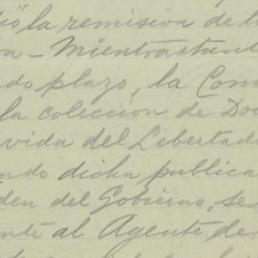 la remision de l
Mientras
do plazo, la Com
la coleccion de Do
vida del Libertad
ndo dicha publica
den del Gobierno, se
nte al Agente de